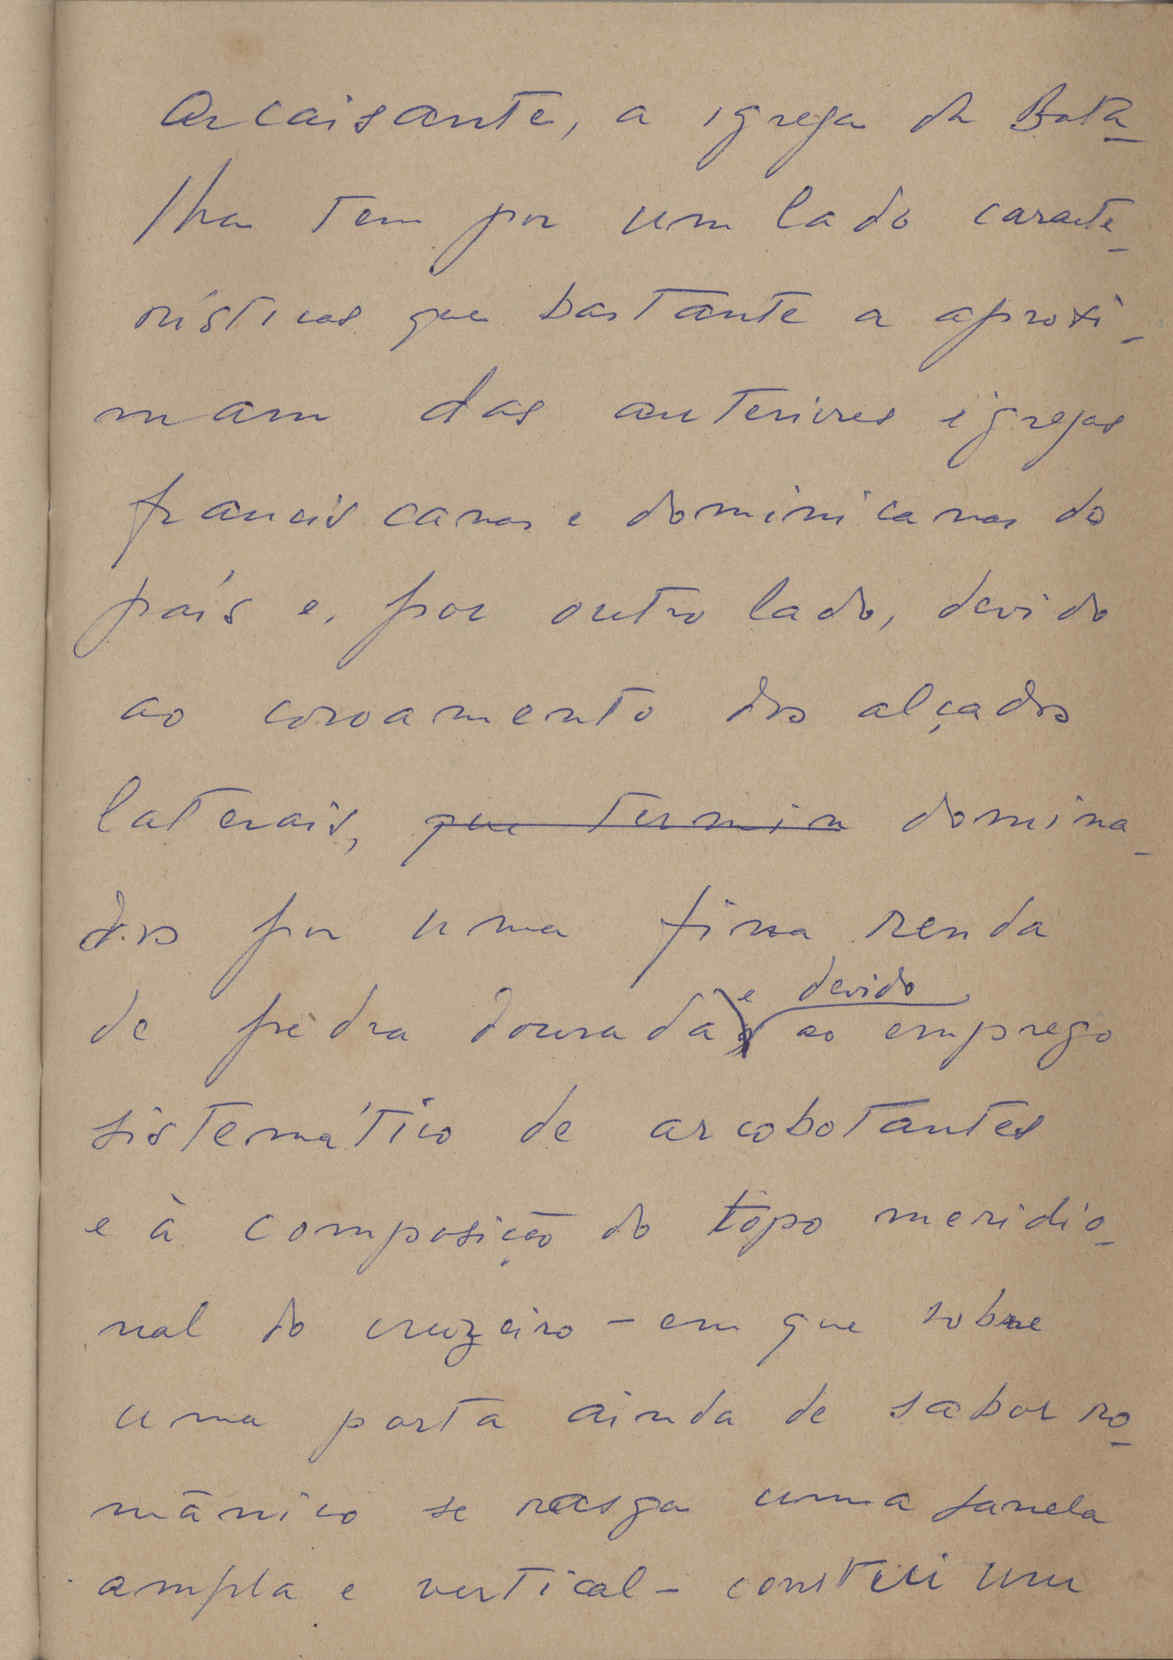 Arcaisante, a igreja da Bata-
lha tem por um lado caracte-
rísticas que bastante a aproxi-
mam das anteriores igrejas
franciscanas e dominicanas do
país e, por outro lado, devido
ao coroamento dos alçados
laterais, que termin domina-
dos por uma fina renda
de pedra dourada, e devido ao emprego
sistemático de arcobotantes
e à composição do topo meridio-
nal do cruzeiro - em que sobre
uma porta ainda de sabor ro-
mânico se rasga uma janela
ampla e vertical - constitui um